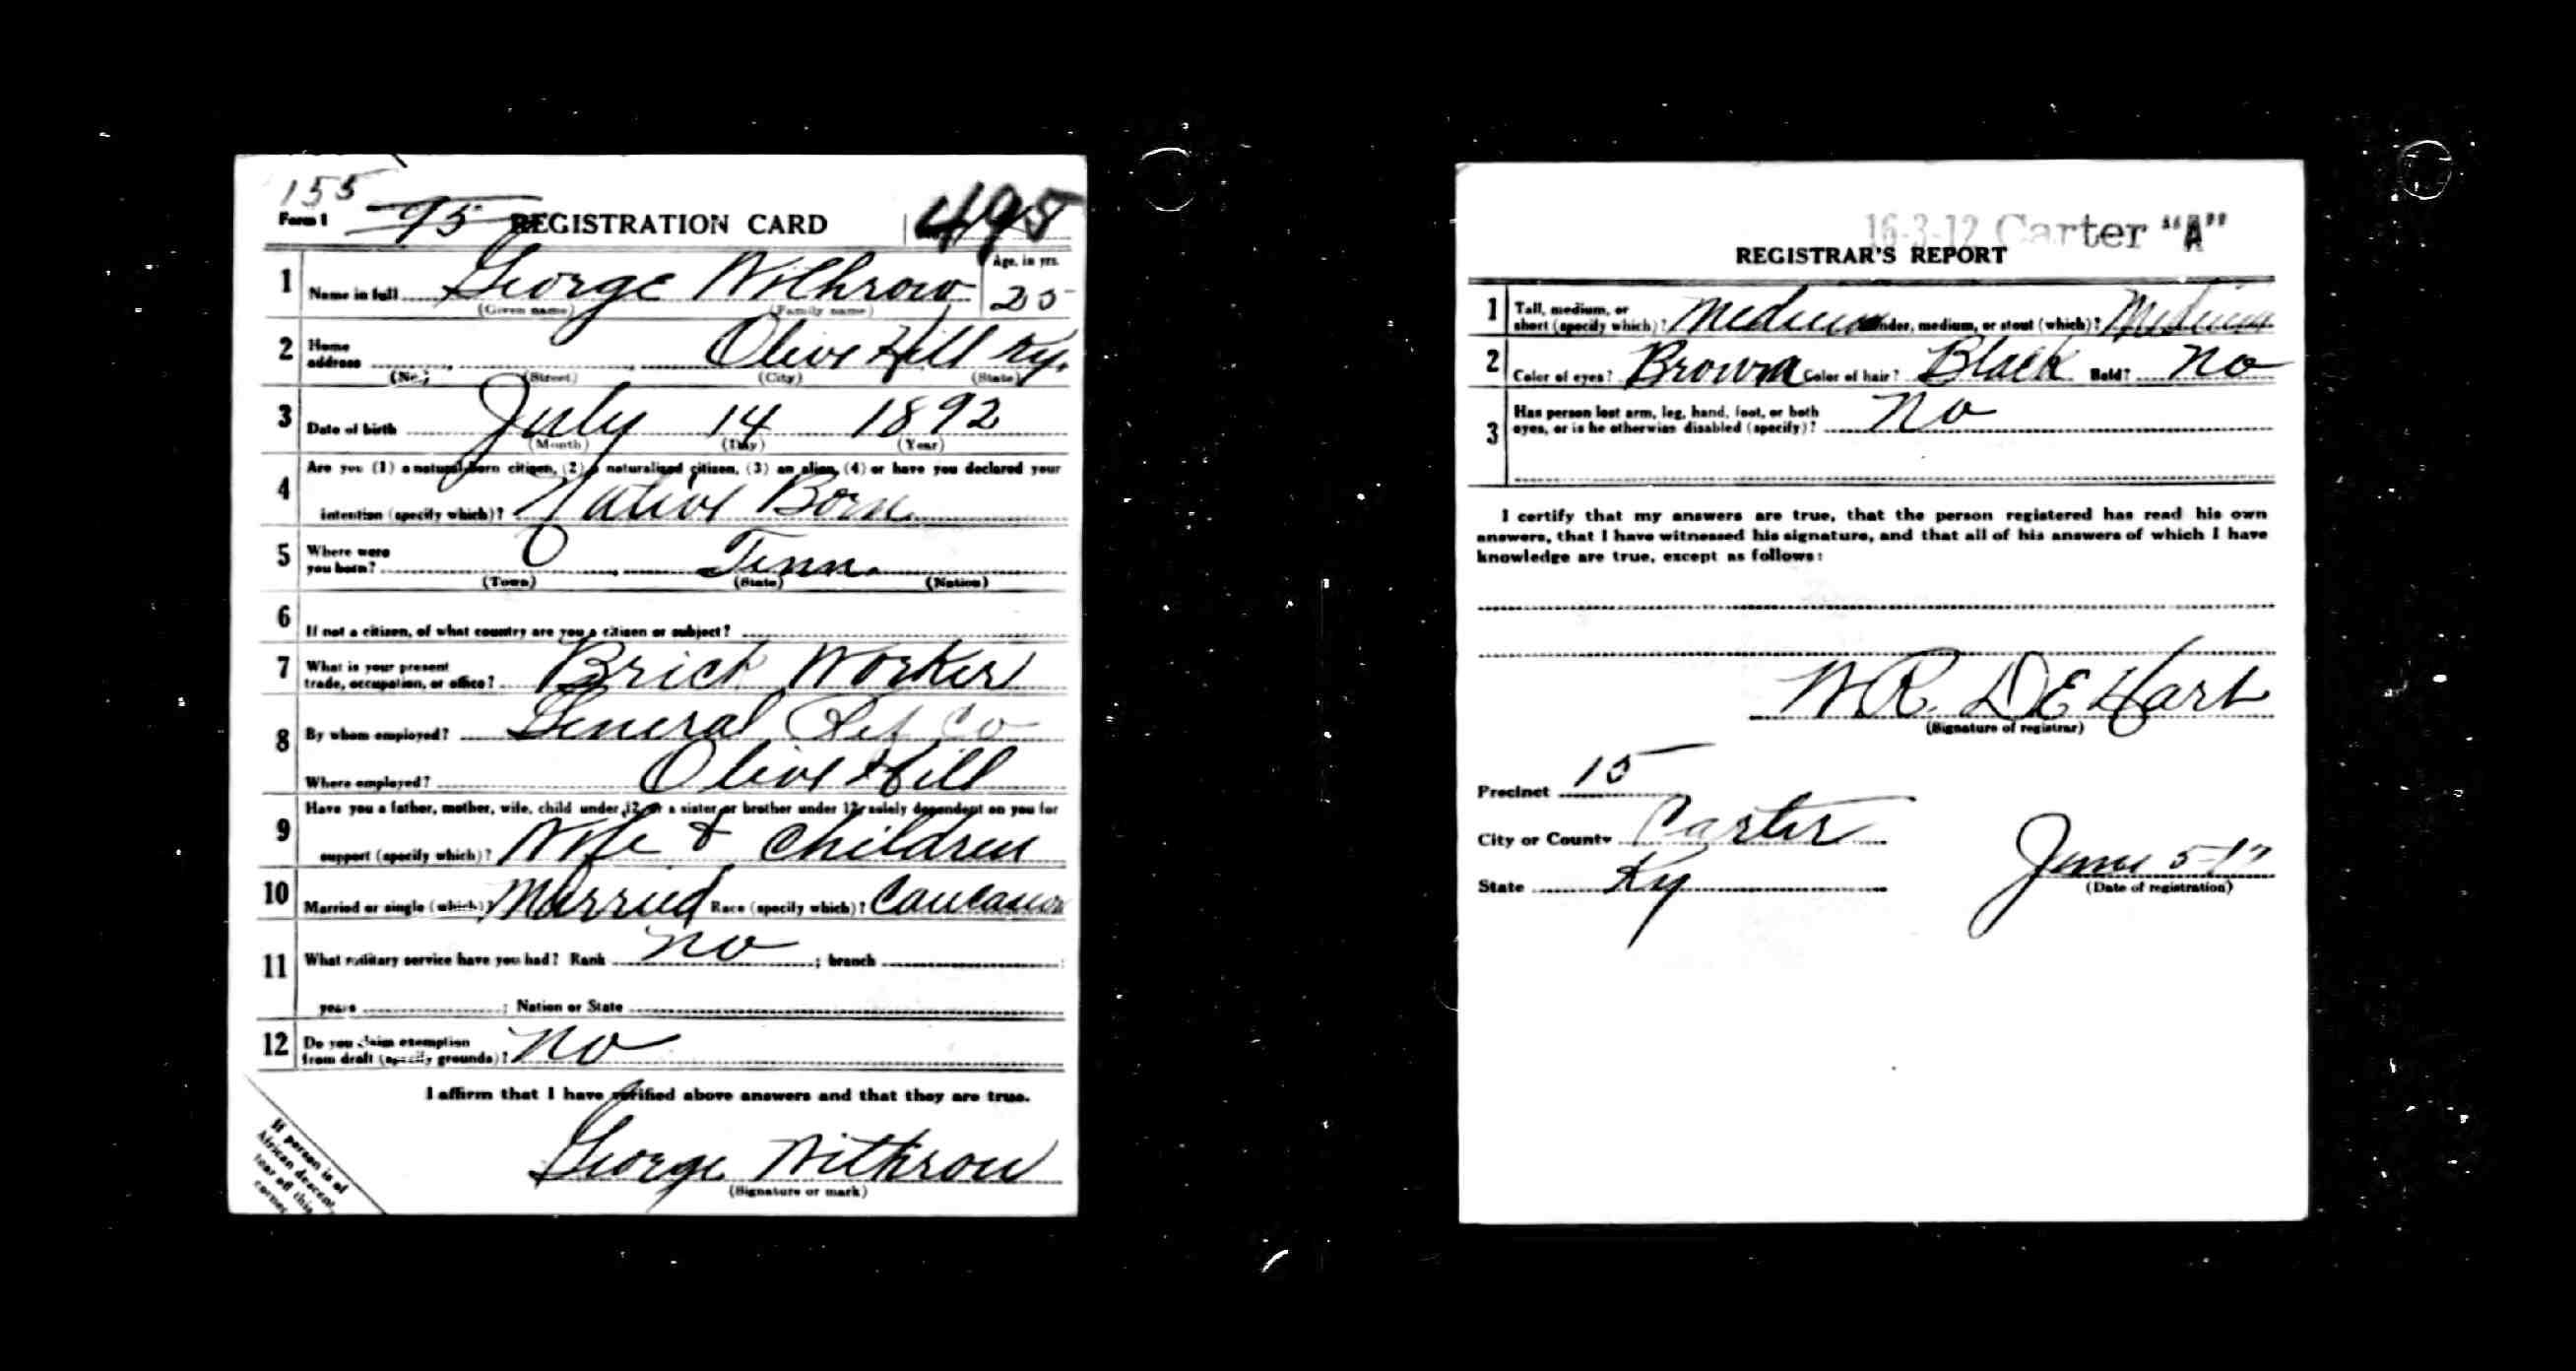 155
Form 1 95 REGISTRATION CARD 495
1 Name in full George Withrow Age, in yrs. 25
(Given name) (Family name)
2 Home address Olive Hill Ky.
(No.) (Street) (City) (State)
3 Date of birth July 14 1892
(Month) (Day) (Year)
4 Are you (1) a natural-born citizen, (2) a naturalized citizen, (3) an alien, (4) or have you declared your
intention (specify which)? Native Born
5 Where were you born? O Tenn.
(Town) (State) (Nation)
6 If not a citizen, of what country are you a citizen or subject?
7 What is your present trade, occupation, or office? Brick Worker
8 By whom employed? General Ref Co
Where employed? Olive Hill
9 Have you a father, mother, wife, child under 12, or a sister or brother under 12, solely dependent on you for
support (specify which)? Wife & children
10 Married or single (which)? Married Race (specify which)? Caucasian
11 What military service have you had? Rank no ; branch
years ; Nation or State
12 Do you claim exemption from draft (specify grounds)? no
I affirm that I have verified above answers and that they are true.
George Withrow
(Signature or mark)
If person is of
African descent,
tear off this
corner
16-3-12 Carter "A"
REGISTRAR'S REPORT
1 Tall, medium, or short (specify which)? Medium Slender, medium, or stout (which)? Medium
2 Color of eyes? Brown Color of hair? Black Bald? no
3 Has person lost arm, leg, hand, foot, or both
eyes, or is he otherwise disabled (specify)? No
I certify that my answers are true, that the person registered has read his own
answers, that I have witnessed his signature, and that all of his answers of which I have
knowledge are true, except as follows:
W.R. DEHart
(Signature of registrar)
Precinct 15
City or County Carter
State Ky June 5-17
(Date of registration)